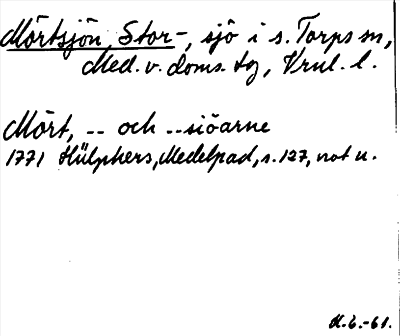 Mörtsjön, Stor-, sjö i s. Torps sn,
Med. v. doms. tg, Vrnl. l.
Mört, -- och --siöarne
1771 Hülphers, Medelpad, s. 127, not u.
H.G.-61.